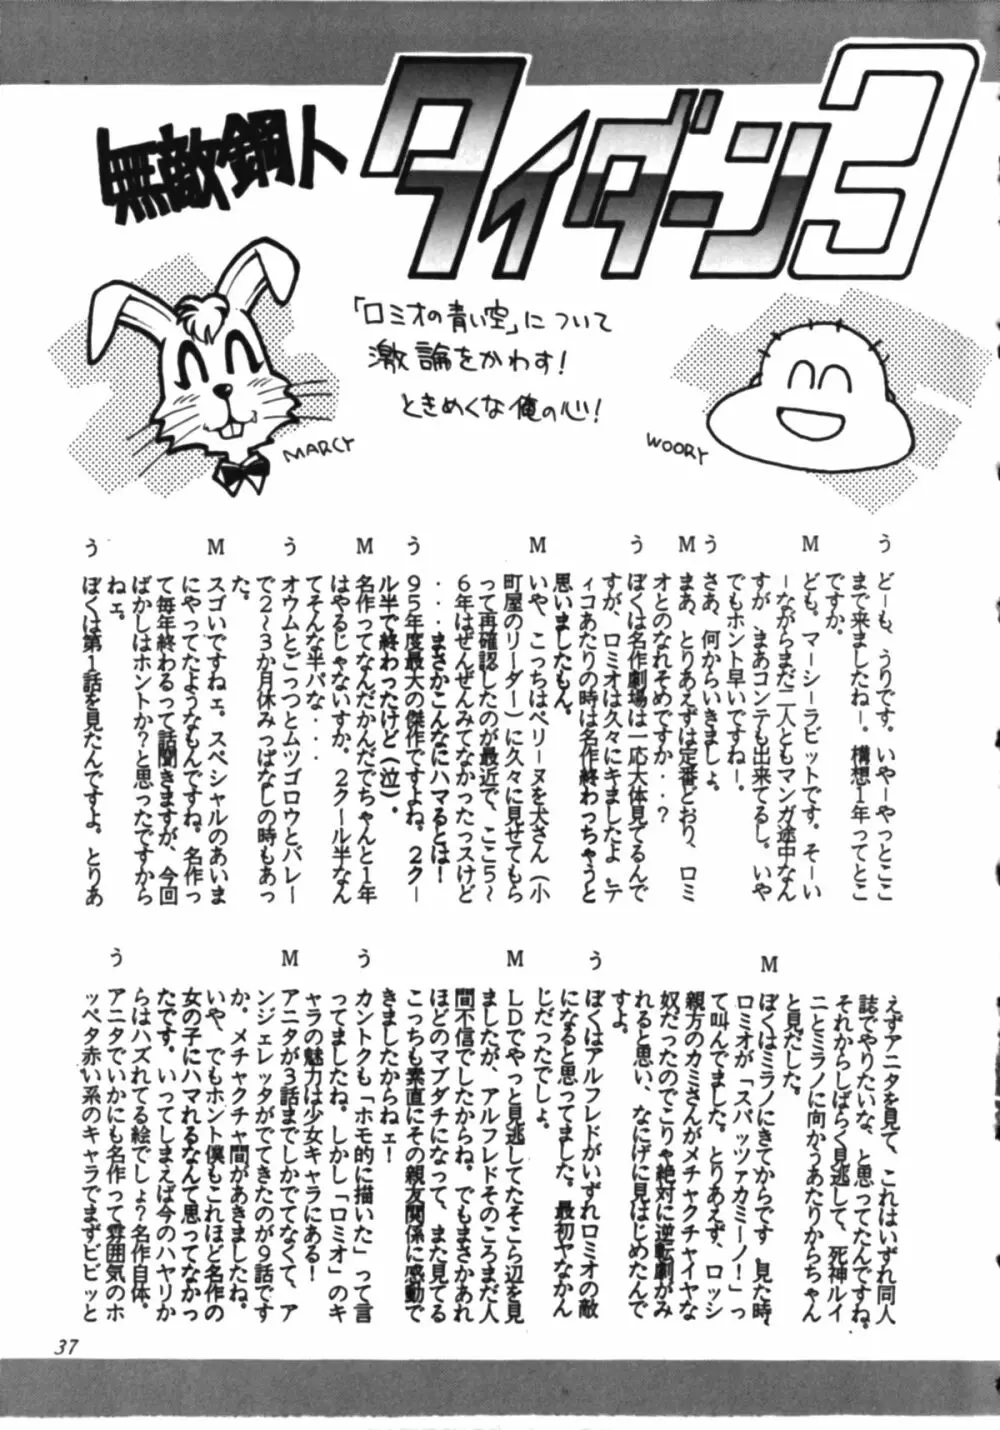 無敵鋼人
タイダーン3
「ロミオの青い空」について
激論をかわす!
ときめくな俺の心!
MARCY
WOORY
う どーも、うりです。いやーやっとここ
まで来ましたねー。構想1年ってとこ
ですか。
M ども。マーシーラビットです。そーい
ーながらまだ二人ともマンガ途中なん
すが まあコンテも出来てるし。いや
でもホント早いですねー。
う さあ、何からいきましょ。
M まあ、とりあえずは定番どおり、ロミ
オとのなれそめですか・・?
う ぼくは名作劇場は一応大体見てるんで
すが、ロミオは久々にキましたよ。テ
ィコあたりの時は名作終わっちゃうと
思いましたもん。
M いや、こっちはペリーヌを犬さん(小
町屋のリーダー)に久々に見せてもら
って再確認したのが最近で、ここ5~
6年はぜんぜんみてなかったっスけど
・・・まさかこんなにハマるとは!
う 95年度最大の傑作ですよね。2クー
ル半で終わったけど(泣)。
M 名作ってなんだかんだでちゃんと1年
はやるじゃないすか。2クール半なん
てそんな半パな・・・
う オウムとごっつとムツゴロウとバレー
で2~3か月休みっぱなしの時もあっ
た。
M スゴいですねェ。スペシャルのあいま
にやってたようなもんですね。名作っ
て毎年終わるって話聞きますが、今回
ばかしはホントか?と思ったですから
ねェ。
う ぼくは第1話を見たんですよ。とりあ
えずアニタを見て、これはいずれ同人
誌でやりたいな、と思ってたんですね。
それからしばらく見逃して、死神ルイ
ニとミラノに向かうあたりからちゃん
と見だした。
M ぼくはミラノにきてからです 見た時
ロミオが「スパッツァカミーノ!」っ
て叫んでました。とりあえず、ロッシ
親方のカミさんがメチャクチャイヤな
奴だったのでこりゃ絶対に逆転劇がみ
れると思い、なにげに見はじめたんで
すよ。
う ぼくはアルフレドがいずれロミオの敵
になると思ってました。最初ヤなかん
じだったでしょ。
M LDでやっと見逃してたそこら辺を見
ましたが、アルフレドそのころまだ人
間不信でしたからね。でもまさかあれ
ほどのマブダチになって、また見てる
こっちも素直にその親友関係に感動で
きましたからねェ!
う カントクも「ホモ的に描いた」って言
ってましたね。しかし「ロミオ」のキ
ャラの魅力は少女キャラにある!
M アニタが3話までしかでてなくて、ア
ンジェレッタがでてきたのが9話です
か。メチャクチャ間があきましたね。
いや、でもホント僕もこれほど名作の
女の子にハマれるなんて思ってなかっ
たです。いってしまえば今のハヤりか
らはハズれてる絵でしょ?名作自体。
う アニタでいかにも名作って雰囲気のホ
ッペタ赤い系のキャラでまずビビッと
37